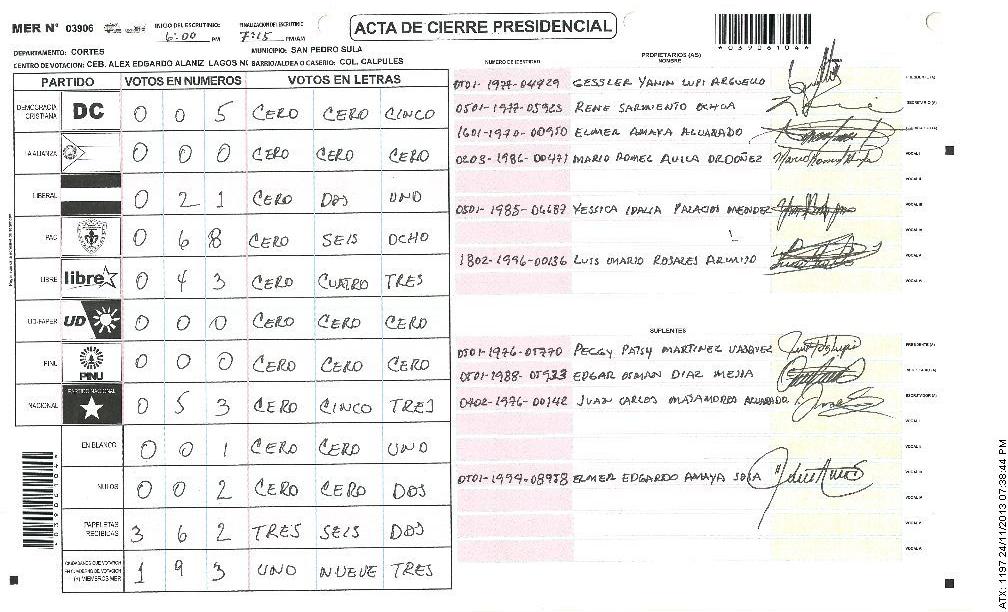 MER N° 03906
INICIO DEL ESCRUTINIO: 6:00 PM
FINALIZACION DEL ESCRUTINIO 7:15 PM/AM
ACTA DE CIERRE PRESIDENCIAL
DEPARTAMENTO: CORTES
MUNICIPIO: SAN PEDRO SULA
CENTRO DE VOTACION: CEB. ALEX EDGARDO ALANIZ LAGOS NO BARRIO/ALDEA O CASERIO: COL. CALPULES
PARTIDO VOTOS EN NUMEROS VOTOS EN LETRAS
DEMOCRACIA CRISTIANA DC 0 0 5 CERO CERO CINCO
LA ALIANZA 0 0 0 CERO CERO CERO
LIBERAL 0 2 1 CERO DOS UNO
PAC 0 6 8 CERO SEIS OCHO
LIBRE libre 0 4 3 CERO CUATRO TRES
UD-FAPER UD 0 0 0 CERO CERO CERO
PINU PINU 0 0 0 CERO CERO CERO
NACIONAL PARTIDO NACIONAL 0 5 3 CERO CINCO TRES
EN BLANCO 0 0 1 CERO CERO UNO
NULOS 0 0 2 CERO CERO DOS
PAPELETAS RECIBIDAS 3 6 2 TRES SEIS DOS
CIUDADANOS QUE VOTARON EN CUADERNO DE VOTACION (+) MIEMBROS MER 1 9 3 UNO NUEVE TRES
NUMERO DE IDENTIDAD
PROPIETARIOS (AS)
NOMBRE
GESSLER YANIN LUPI ARGUELLO PRESIDENTE (A)
RENE SARMIENTO OCHOA SECRETARIO (A)
1601-1970-00950 ELMER AMAYA ALVARADO
0203-1986-00471 MARIO ROMEL AVILA ORDOÑEZ VOCAL I
VOCAL II
0501-1985-06687 YESSICA IDALIA PALACIOS MENDEZ VOCAL III
VOCAL IV
1802-1996-00136 LUIS OMARIO ROSALES VOCAL V
VOCAL VI
SUPLENTES
PEGGY PATSY MARTINEZ VASQUEZ PRESIDENTE (A)
EDGAR OSMAN DIAZ MEJIA
0402-1976-00142 JUAN CARLOS ALVARADO SECRETARIO (A)
VOCAL I
VOCAL II
ELMER EDGARDO AMAYA SOSA VOCAL III
VOCAL IV
VOCAL V
VOCAL VI
ATX: 1197 24/11/2013 07:38:44 PM